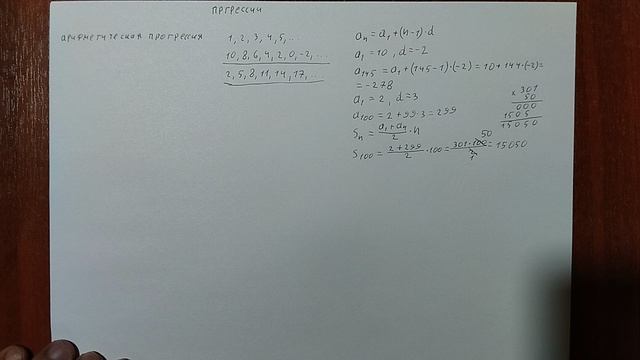 прогрессии
арифметическая прогрессия
1, 2, 3, 4, 5, ...
10, 8, 6, 4, 2, 0, -2, ...
2, 5, 8, 11, 14, 17, ...
aₙ = a₁ + (n-1)·d
a₁ = 10, d = -2
a₁₄₅ = a₁ + (145-1)·(-2) = 10 + 144·(-2) =
= -278
a₁ = 2, d = 3
a₁₀₀ = 2 + 99·3 = 299
Sₙ = (a₁+aₙ)/2 · n
S₁₀₀ = (2+299)/2 · 100 = (301·100)/2 = 15050
50
1
× 301
50
000
1505
15050